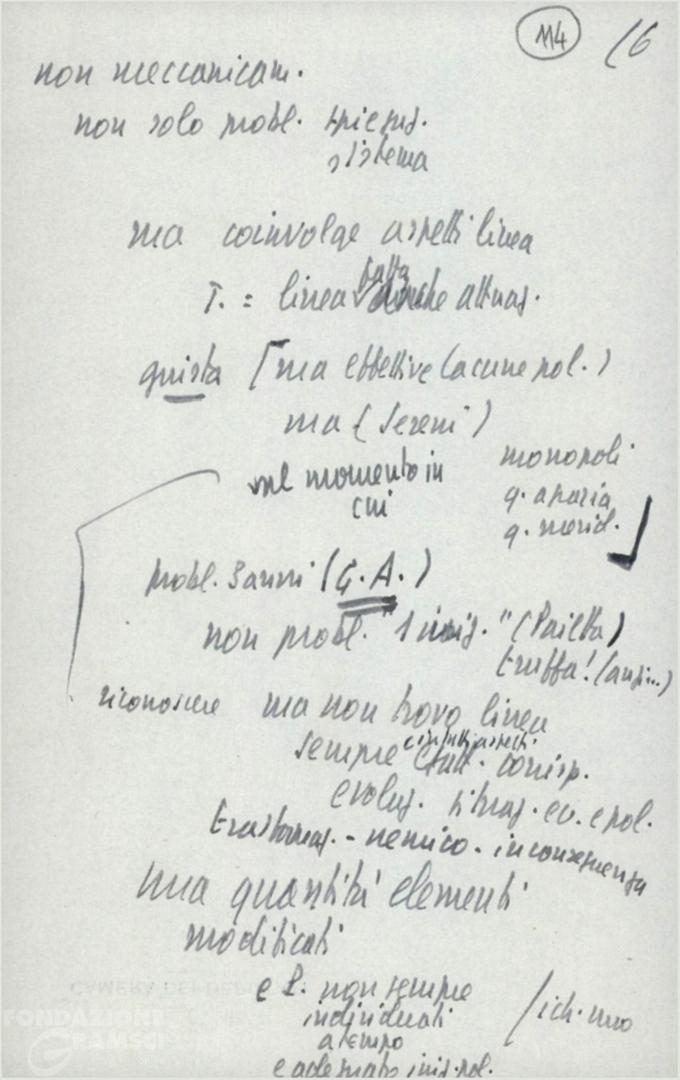 114 16
non meccanicam.
non solo probl. spiegaz.
sistema
ma coinvolge aspetti linea
fatta
T. = linea anche attuaz.
giusta [ma effettive lacune pol.)
ma (Sereni)
nel momento in
cui
monopoli
q. agraria
q. merid.
probl. 3 anni (G.A.)
non probl. "1 iniz." (Pajetta)
truffa! (anzi...)
riconoscere ma non trovo linea
sempre corrisp.
evoluz. situaz. ec. e pol.
trasformaz. - nemico - inconseguenza
una quantità elementi
modificati
e P. non sempre
individuati
a tempo
e adeguato iniz. pol.
FONDAZIONE
GRAMSCI